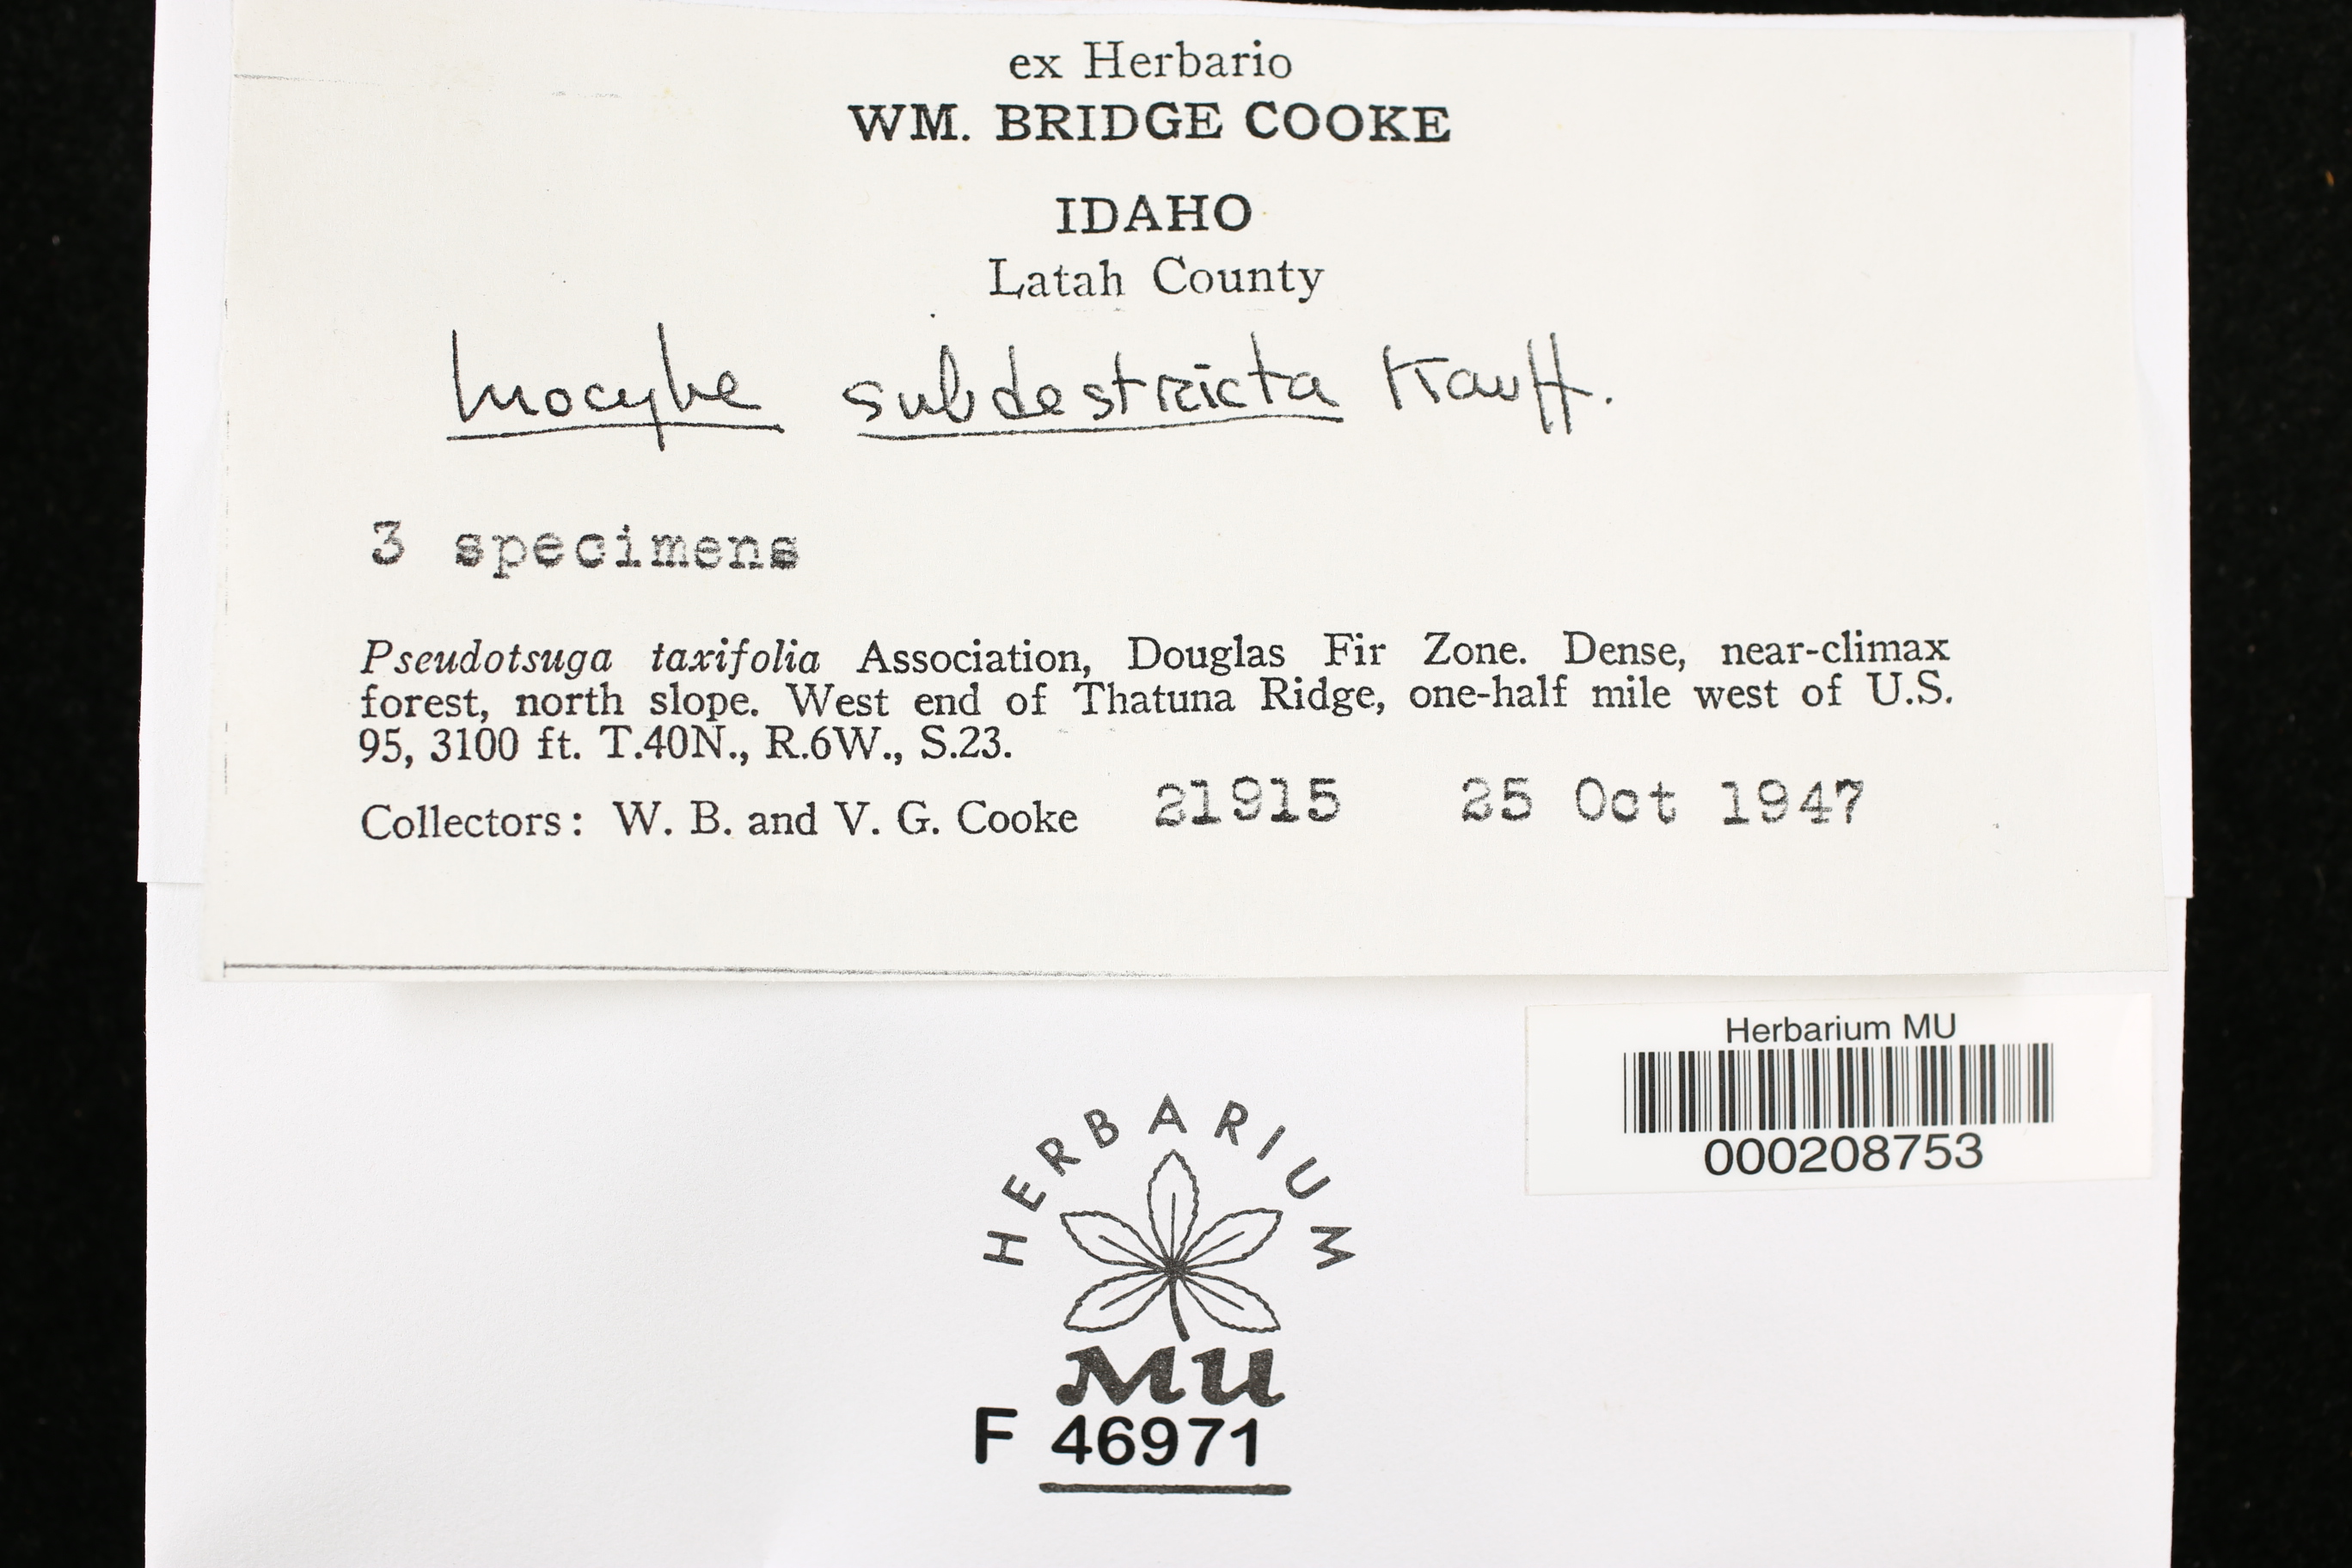 ex Herbario
WM. BRIDGE COOKE
IDAHO
Latah County
Inocybe subdestricta Kauff.
3 specimens
Pseudotsuga taxifolia Association, Douglas Fir Zone. Dense, near-climax
forest, north slope. West end of Thatuna Ridge, one-half mile west of U.S.
95, 3100 ft. T.40N., R.6W., S.23.
Collectors: W. B. and V. G. Cooke 21915 25 Oct 1947
Herbarium MU
000208753
HERBARIUM
MU
F 46971